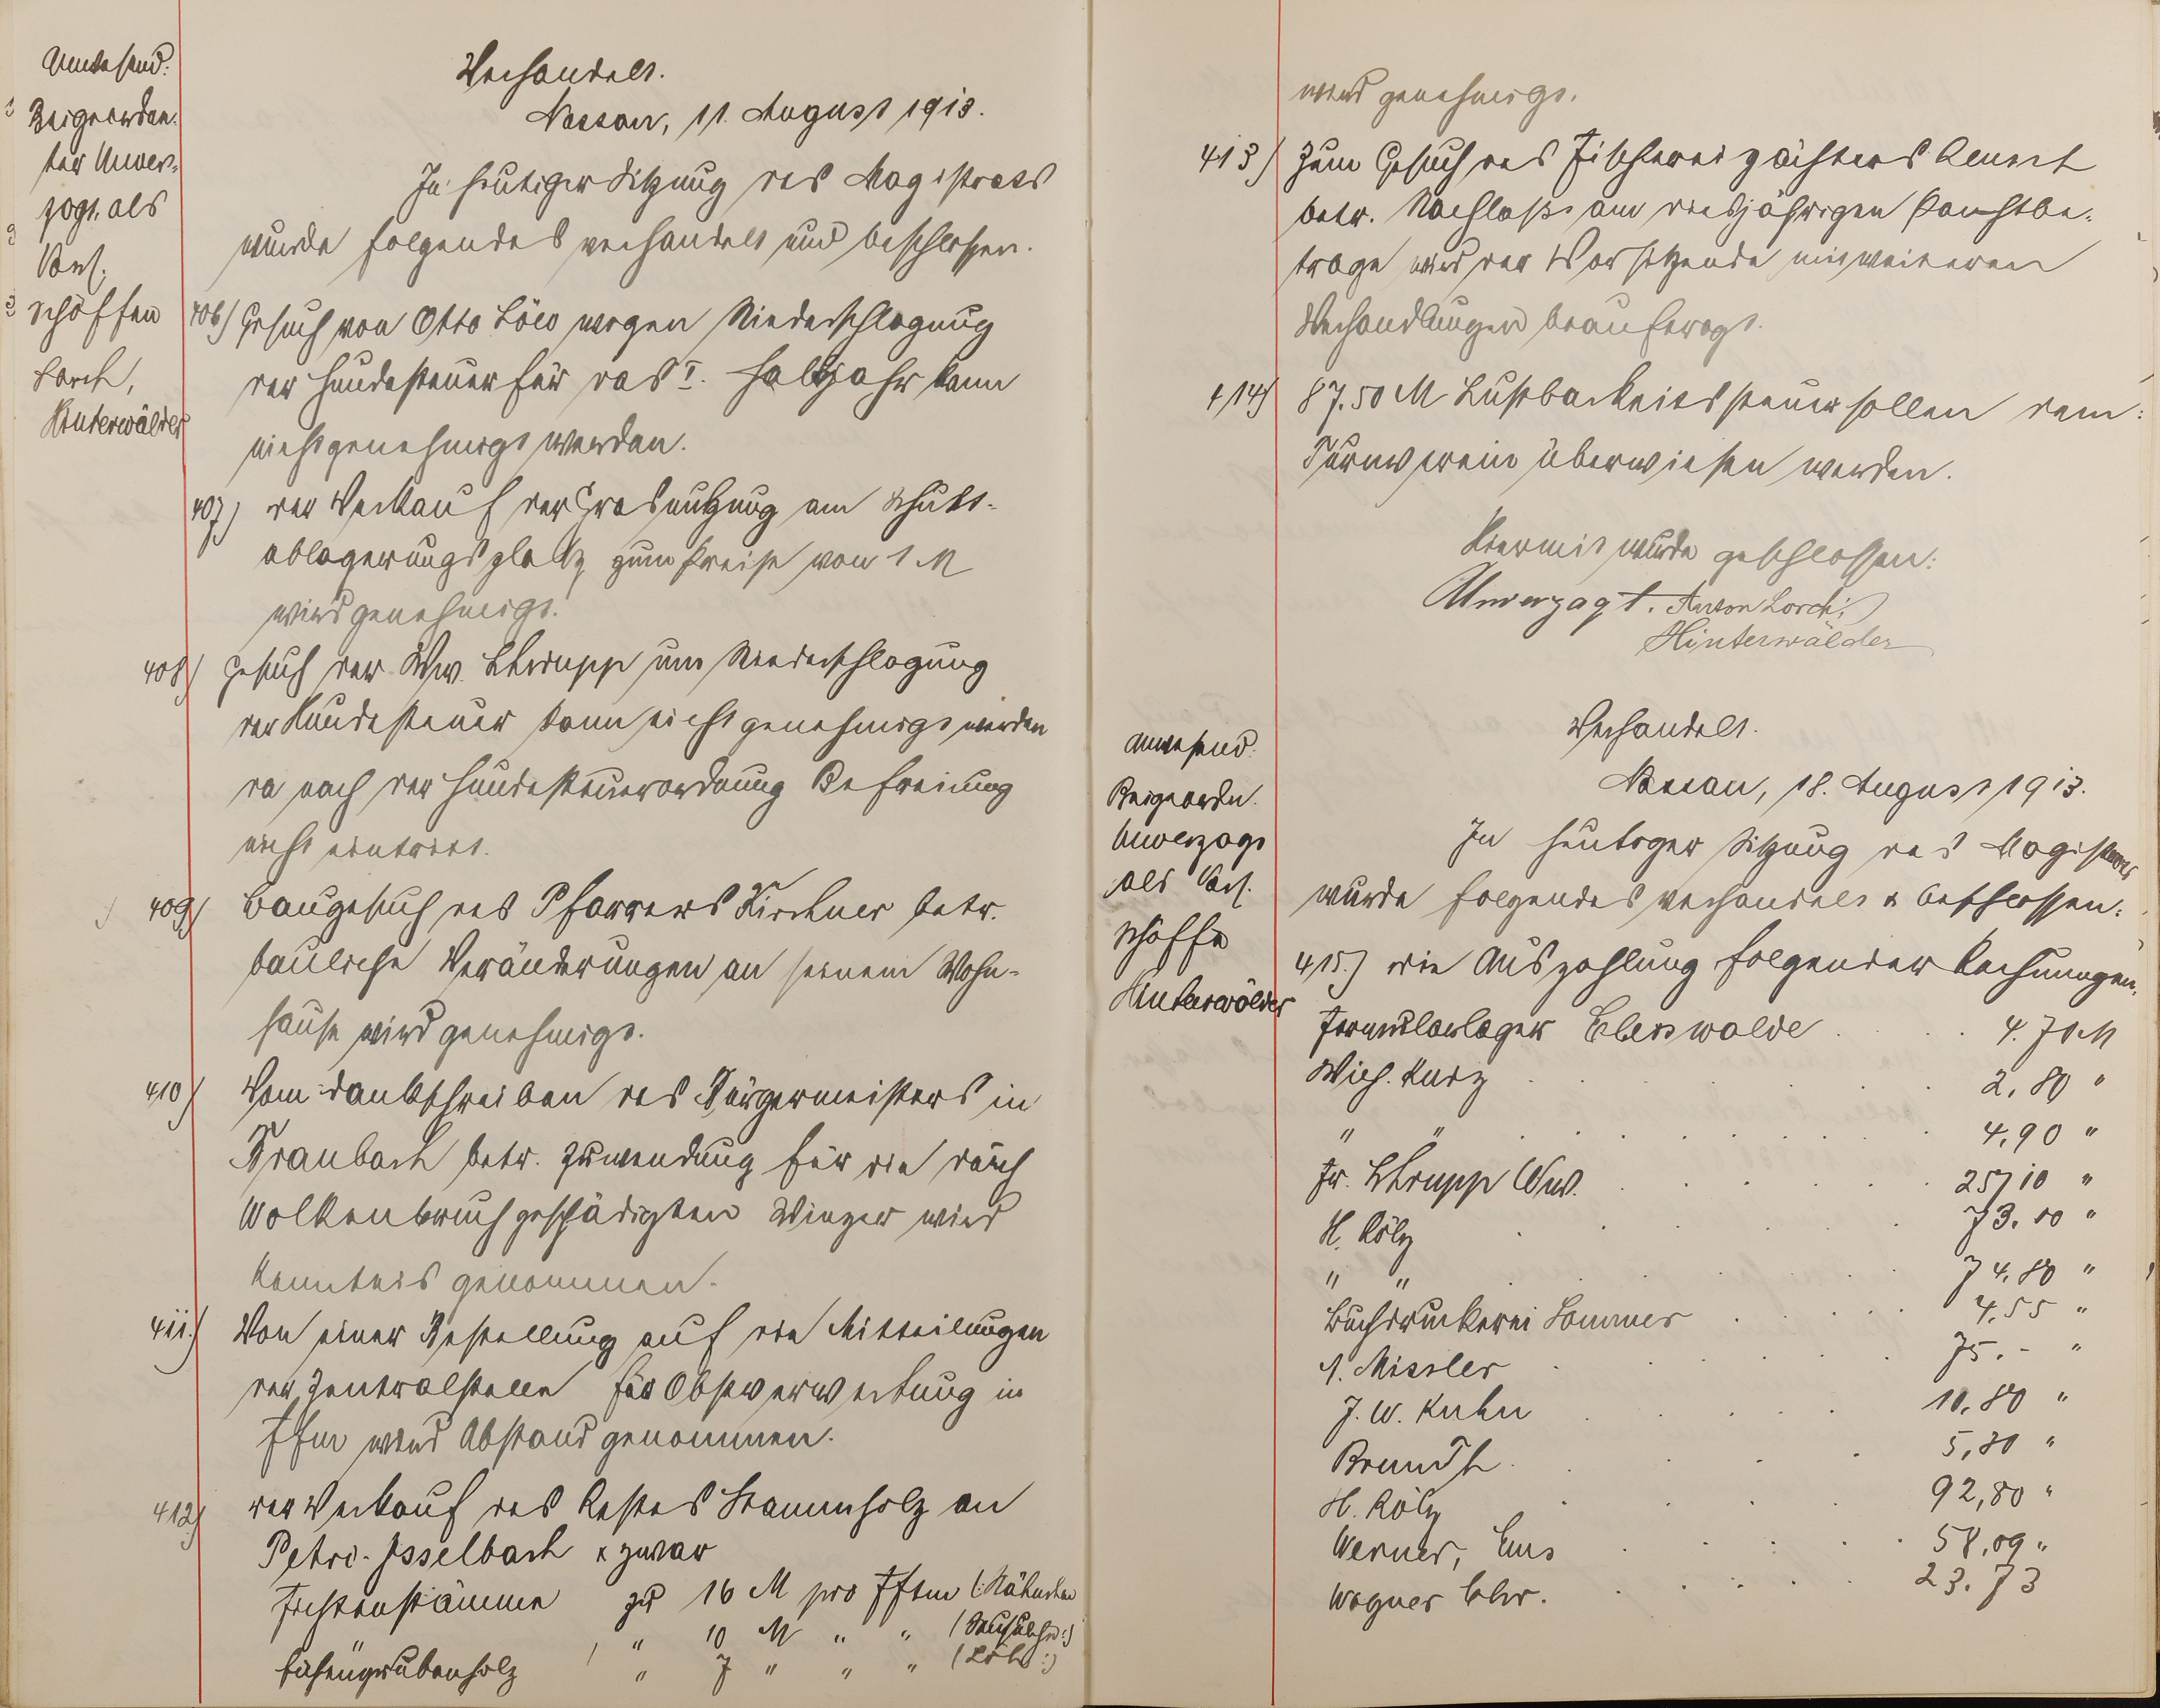 Anwesend:
Beigeordne-
ter Unver-
zagt als
Vors.
Schöffen
Lorch,
Hinterwälder
Verhandelt.
Nassau, 11. August 1913.
In heutiger Sitzung des Magistrats
wurde folgendes verhandelt und beschlossen.
406) Gesuch von Otto Löw wegen Niederschlagung
der Hundesteuer für das I. Halbjahr kann
nicht genehmigt werden.
407) Der Verkauf der Grasnutzung am Schutt-
ablagerungsplatz zum Preise von 1 M
wird genehmigt.
408) Gesuch der Ww. Strupp um Niederschlagung
der Hundesteuer kann nicht genehmigt werden
da nach der Hundesteuerordnung Befreiung
nicht eintritt.
409) Baugesuch des Pfarrers Kirchner betr.
bauliche Veränderungen an seinem Wohn-
hause wird genehmigt.
410) Vom Dankschreiben des Bürgermeisters in
Kraubach betr. Zuwendung für die durch
Wolkenbruch geschädigten Winzer wird
Kenntnis genommen.
411.) Von einer Bestellung auf die Mitteilungen
der Zentralstelle für Obstverwertung in
Ffm wird Abstand genommen.
412) Der Verkauf des Restes Stammholz an
Petri-Isselbach & zwar
Fichtenstämme zu 16 M pro Fstm
" 10 M " "
Buchengrubenholz " 7 " " "
wird genehmigt.
413) Zum Gesuch des Fischereipächters
betr. Nachlaß am diesjährigen Pachtbe-
trage wird der Vorsitzende mit weiteren
Verhandlungen beauftragt.
414) 87.50 M Lustbarkeitssteuer sollen dem
Turnverein überwiesen werden.
Hiermit wurde geschlossen:
Unverzagt. Anton Lorch
Hinterwälder
Anwesend:
Beigeordn.
Unverzagt
als Vors.
Schöffe
Hinterwälder
Verhandelt.
Nassau, 18. August 1913.
In heutiger Sitzung des Magistrats
wurde folgendes verhandelt & beschlossen:
415.) Die Auszahlung folgender Rechnungen.
Formularlager Eberswalde 4.70 M
Wilh. Kurz 2,80 "
" " 4,90 "
Fr. Strupp Ww. 257,10 "
H. Kölz 73.00 "
" " 74,80 "
Buchdruckerei Sommer 4,55 "
A. Missler 75.- "
J. W. Kuhn 10,80 "
Brandt 5,30 "
H. Kölz 92,80 "
Werner, Ems 58,09 "
Wagner Chr. 23.73